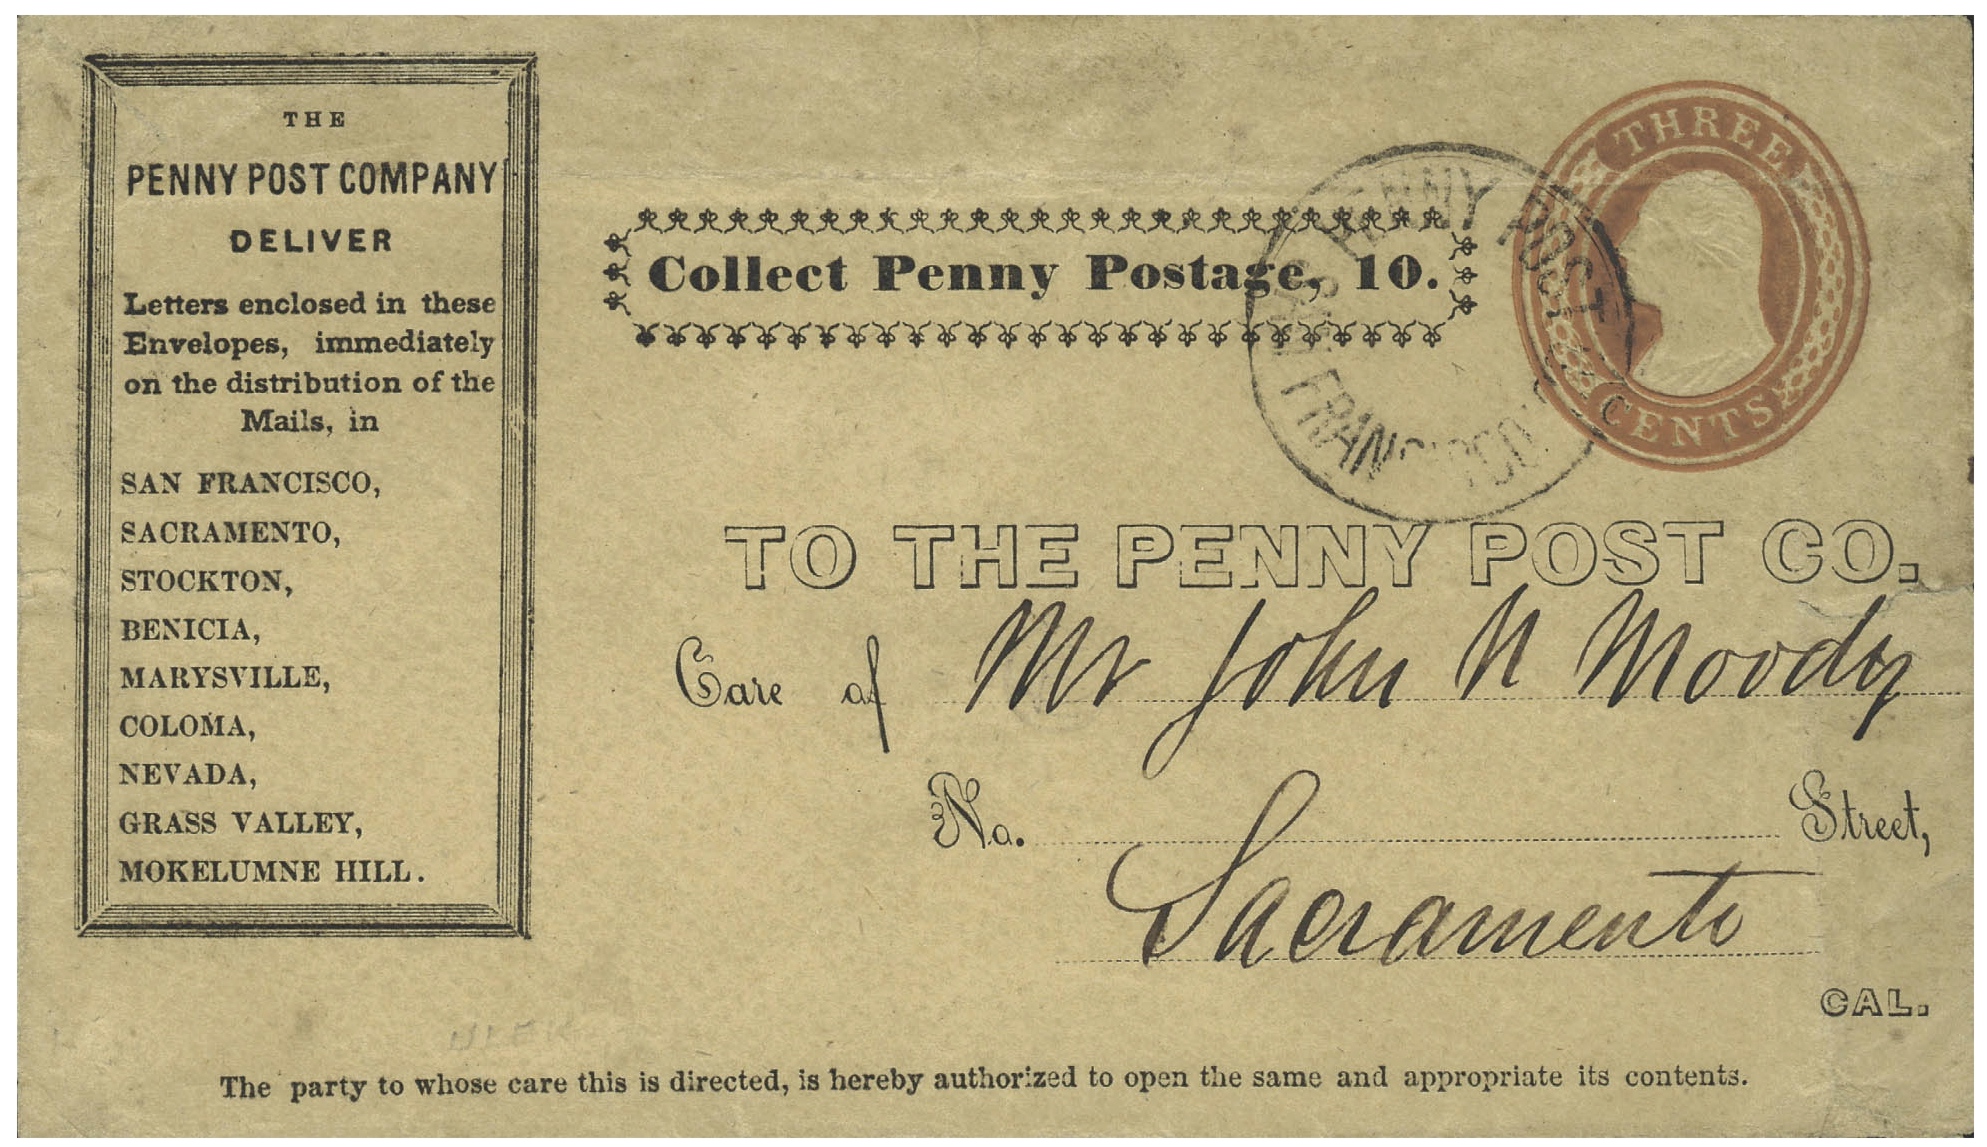 THE
PENNY POST COMPANY
DELIVER
Letters enclosed in these
Envelopes, immediately
on the distribution of the
Mails, in
SAN FRANCISCO,
SACRAMENTO,
STOCKTON,
BENICIA,
MARYSVILLE,
COLOMA,
NEVADA,
GRASS VALLEY,
MOKELUMNE HILL.
Collect Penny Postage, 10.
PENNY POST CO.
SAN FRANCISCO.
THREE
CENTS
TO THE PENNY POST CO.
Care of Mr John N Moody
No. Street,
Sacramento
CAL.
The party to whose care this is directed, is hereby authorized to open the same and appropriate its contents.